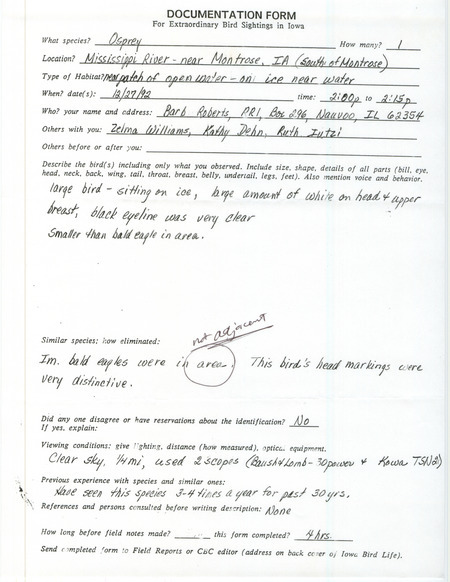 DOCUMENTATION FORM
For Extraordinary Bird Sightings in Iowa
What species? Osprey How many? 1
Location? Mississippi River - near Montrose, IA (South of Montrose)
Type of Habitat? patch of open water - on ice near water
When? date(s): 12/27/92 time: 2:00p to 2:15p
Who? your name and address: Barb Roberts, PR1, Box 296, Nauvoo, IL 62354
Others with you: Zelma Williams, Kathy Dehn, Ruth
Others before or after you:
Describe the bird(s) including only what you observed. Include size, shape, details of all parts (bill, eye,
head, neck, back, wing, tail, throat, breast, belly, undertail, legs, feet). Also mention voice and behavior.
large bird - sitting on ice, large amount of white on head & upper
breast, black eyeline was very clear
Smaller than bald eagle in area.
not adjacent
Similar species; how eliminated:
Im. bald eagles were in area. This bird's head markings were
very distinctive.
Did any one disagree or have reservations about the identification? No
If yes, explain:
Viewing conditions: give lighting, distance (how measured), optical equipment.
Clear sky, 1/4 mi, used 2 scopes (Baush & Lomb - 30 power & Kowa TSN2)
Previous experience with species and similar ones:
Have seen this species 3-4 times a year for past 30 yrs.
References and persons consulted before writing description: None
How long before field notes made? this form completed? 4 hrs.
Send completed form to Field Reports or CBC editor (address on back cover of Iowa Bird Life).